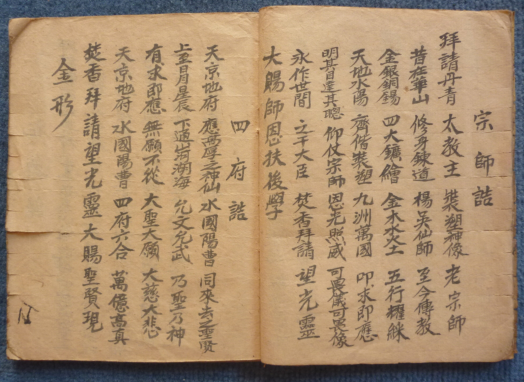 宗師誥
拜請丹青 太教主 裝塑神像 老宗師
昔在華山 修身鍊道 楊吳仙師 至今傳教
金銀銅錫 四大鑛繪 金木水火土 五行耀綵
天地水陽 齊偕裝塑 九洲萬國 叩求即應
明其目達其聰 仰仗宗師 恩光照威 可畏儀可畏像
永作世間 之干大臣 焚香拜請 望光靈
大賜師恩扶後學
四府誥
天京地府 應高學之神仙 水國陽曹 同來去聖賢
上至日月星辰 下通山河湖海 允文允武 乃聖乃神
有求即應 無願不從 大聖大願 大慈大悲
天京地府 水國陽曹 四府六合 萬億高真
焚香拜請望光靈 大賜聖賢現
金形